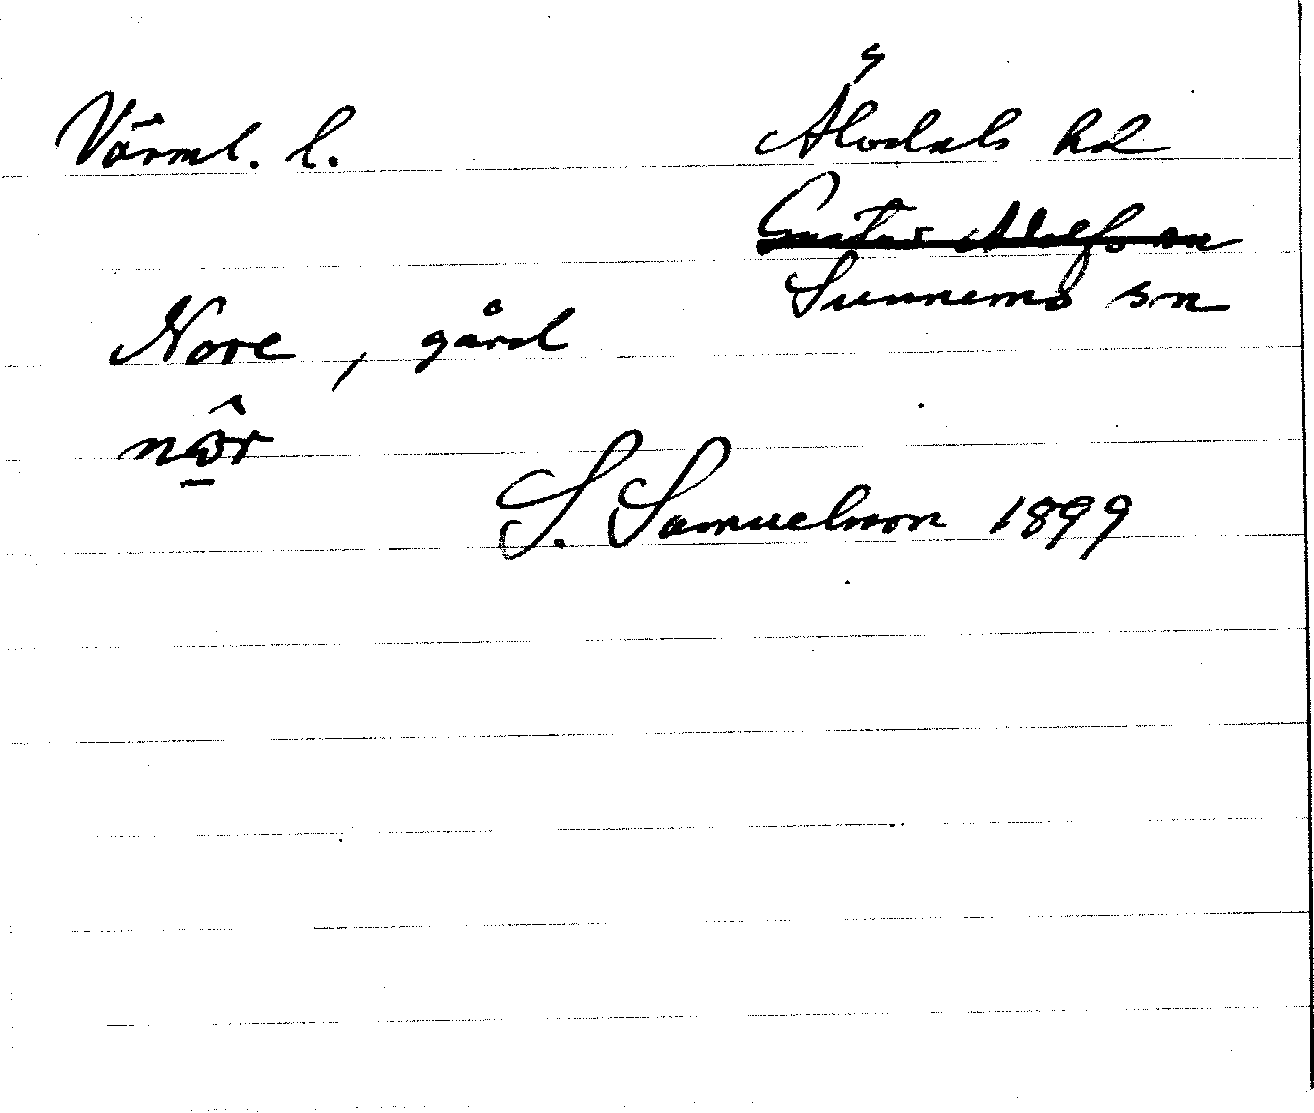 Värml. l.
Älvdals hd
Gustav Adolfs sn
Sunnemo sn
Nore, gård
nôr
S. Samuelsson 1899